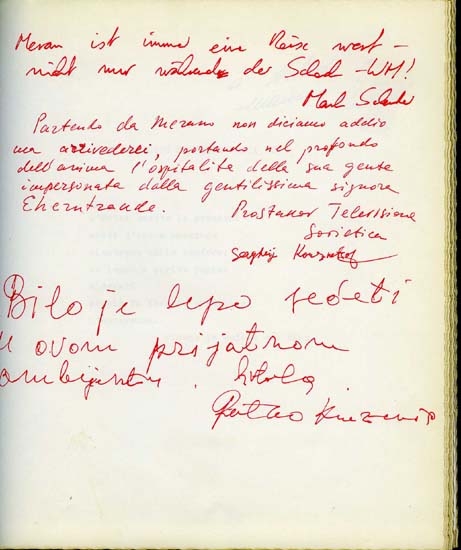 Meran ist immer eine Reise wert –
nicht nur während der Schach-WM!
Partendo da Merano non diciamo addio
ma arrivederci, portando nel profondo
dell'anima l'ospitalità della sua gente
impersonata dalla gentilissima signora
Televisione
Sovietica
Bilo je lepo sedeti
u ovom prijatnom
ambijentu. Hvala
Ratko Knezevic